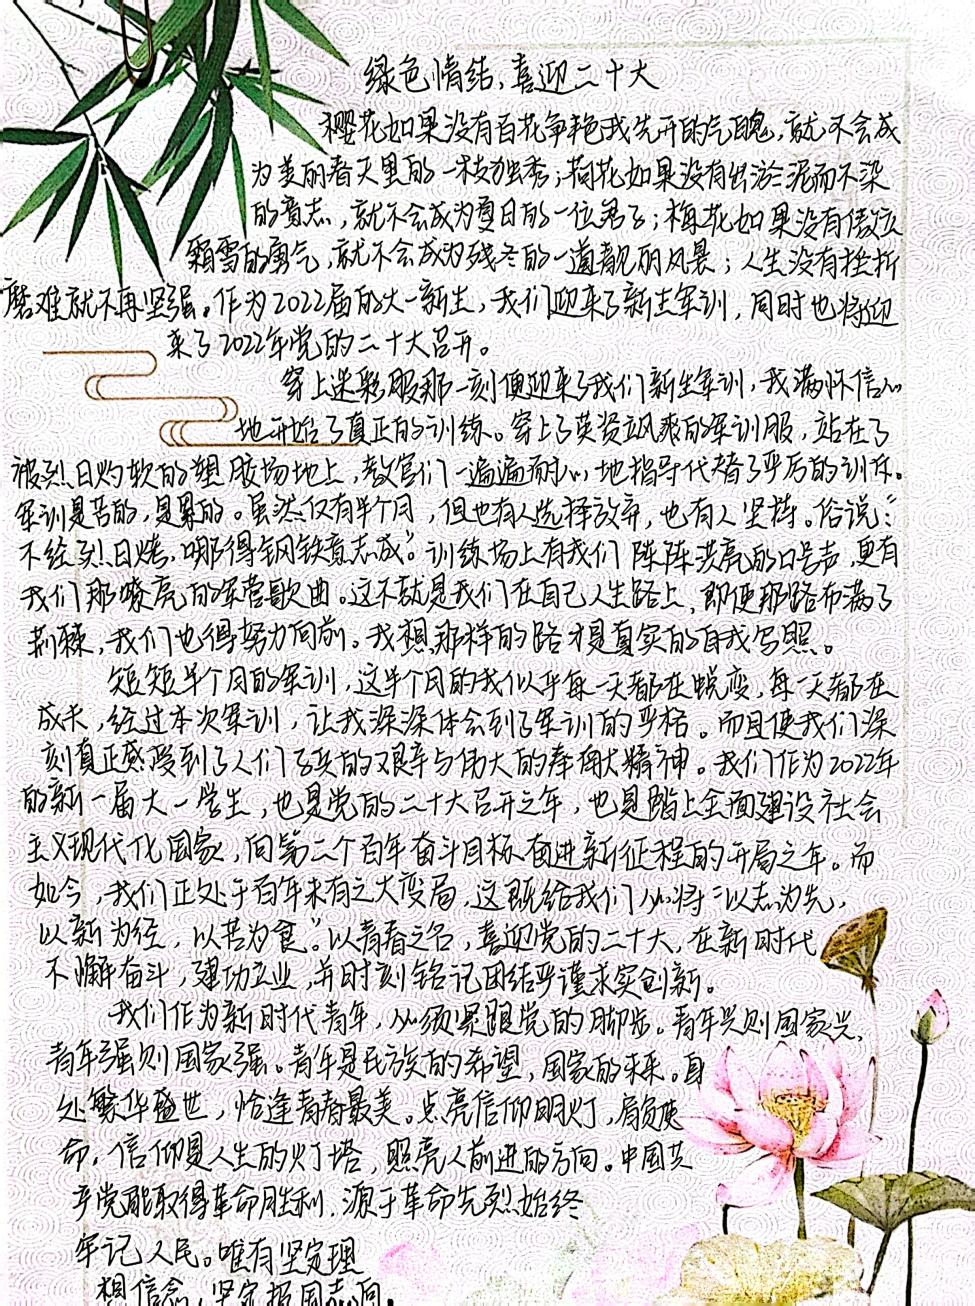 绿色情结,喜迎二十大
樱花如果没有百花争艳我先开的气魄,就不会成
为美丽春天里的一枝独秀;荷花如果没有出淤泥而不染
的意志,就不会成为夏日的一位君子;梅花如果没有傲立
霜雪的勇气,就不会成为残冬的一道靓丽风景;人生没有挫折
磨难就不再坚强。作为2022届的大一新生,我们迎来了新生军训,同时也将迎
来了2022年党的二十大召开。
穿上迷彩服那一刻便迎来了我们新生军训,我满怀信心
地开始了真正的训练。穿上了英资飒爽的军训服,站在了
被烈日灼软的塑胶场地上,教官们一遍遍耐心地指导代替了严厉的训斥。
军训是苦的,是累的。虽然仅有半个月,但也有人选择放弃,也有人坚持。俗说:“
不经烈日烤,哪得钢铁意志成”。训练场上有我们阵阵洪亮的口号声,更有
我们那嘹亮的军营歌曲。这不就是我们在自己人生路上,即使那路布满了
荆棘,我们也得努力向前。我想那样的路才是真实的自我写照。
短短半个月的军训,这半个月的我似乎每一天都在蜕变,每一天都在
成长,经过本次军训,让我深深体会到了军训的严格。而且使我们深
刻真正感受到了人们子兵的艰辛与伟大的奉献精神。我们作为2022年
的新一届大一学生,也是党的二十大召开之年,也是踏上全面建设社会
主义现代化国家,向第二个百年奋斗目标奋进新征程的开局之年。而
如今,我们正处于百年未有之大变局,这既给我们必将“以志为先,
以新为径,以苦为食”。以青春之名,喜迎党的二十大,在新时代
不懈奋斗,建功立业,并时刻铭记团结严谨求实创新。
我们作为新时代青年,必须紧跟党的脚步。青年兴则国家兴,
青年强则国家强。青年是民族的希望,国家的未来。身
处繁华盛世,恰逢青春最美。点亮信仰明灯,肩负使
命。信仰是人生的灯塔,照亮人前进的方向。中国共
产党能取得革命胜利,源于革命先烈始终
牢记人民。唯有坚定理
想信念,坚定报国志向。